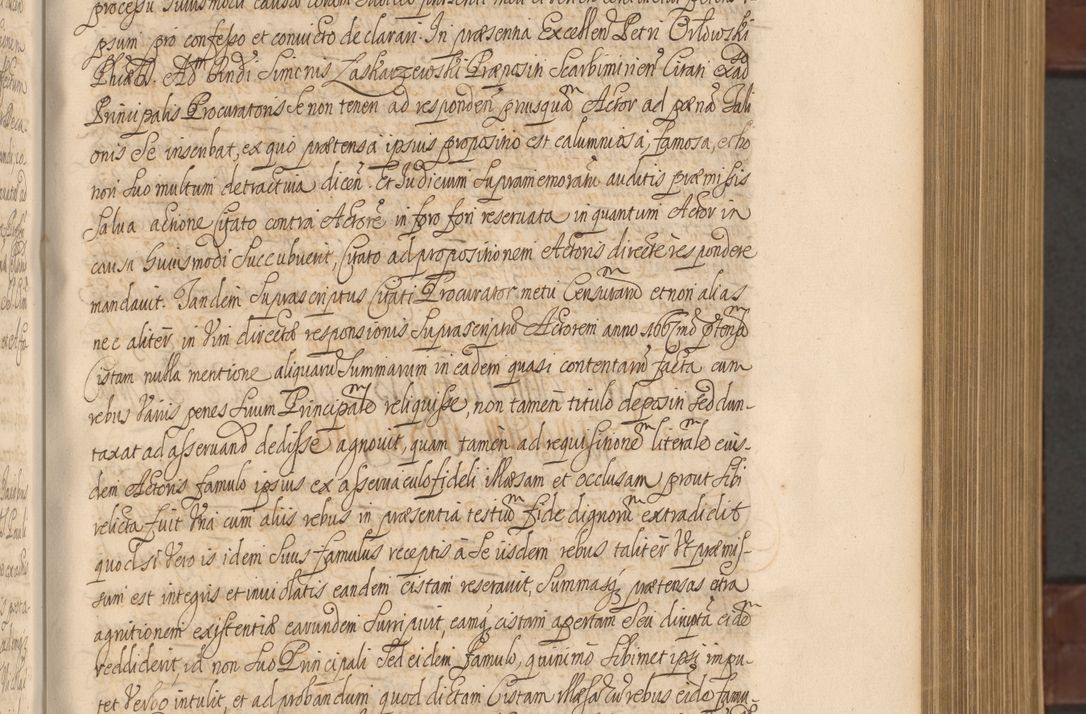 processu huiusmodi causa coram
psum pro confesso et convicto declarari. In præsentia Excellen Petri Orłowski
Phiæ Dr. Adm Rndi Simeonis Zaskarzewski Præpositi Scarbimirien Citati ex ad
Principalis Procuratoris se non teneri ad responden priusquam Actor ad pænam Tali
onis se inscribat, ex quo prætensa ipsius propositio est calumniosa, famosa, et ho
nori suo multum detractiva dicen. Et Judicium supramemoratum auditis præmissis
salva actione Citato contra Actorem in foro fori reservata in quantum Actor in
causa huiusmodi succubuerit, Citato ad propositionem Actoris directe respondere
mandavit. Tandem suprascriptus Citati Procurator metu Censurarum et non alias
nec aliter in vim directæ responsionis suprascriptum Actorem anno 1667mo prætensam
Cistam nulla mentione aliquarum summarum in eadem quasi contentarum facta cum
rebus variis penes suum Principalem reliquisse, non tamen titulo depositi sed dun-
taxat ad asservandum dedisse agnovit, quam tamen ad requisitionem literalem eius-
dem Actoris famulo ipsius ex asservaculo fideli illæsam et occlusam prout sibi
relicta fuit una cum aliis rebus in præsentia testium fide dignorum extradidit
quod si vero is idem suus famulus receptis à se iisdem rebus taliter ut præmis-
sum est integris et inviolatis eandem cistam reseravit, summasque prætensas citra
agnitionem existentiæ earundem surripuit, eamque cistam apertam seu diruptam eidem
reddiderit, id non suo Principali sed eidem famulo, quinimo sibimet ipsi impu-
tet verbo intulit, et ad probandum quod dictam Cistam illæsam cum rebus eidem famu-